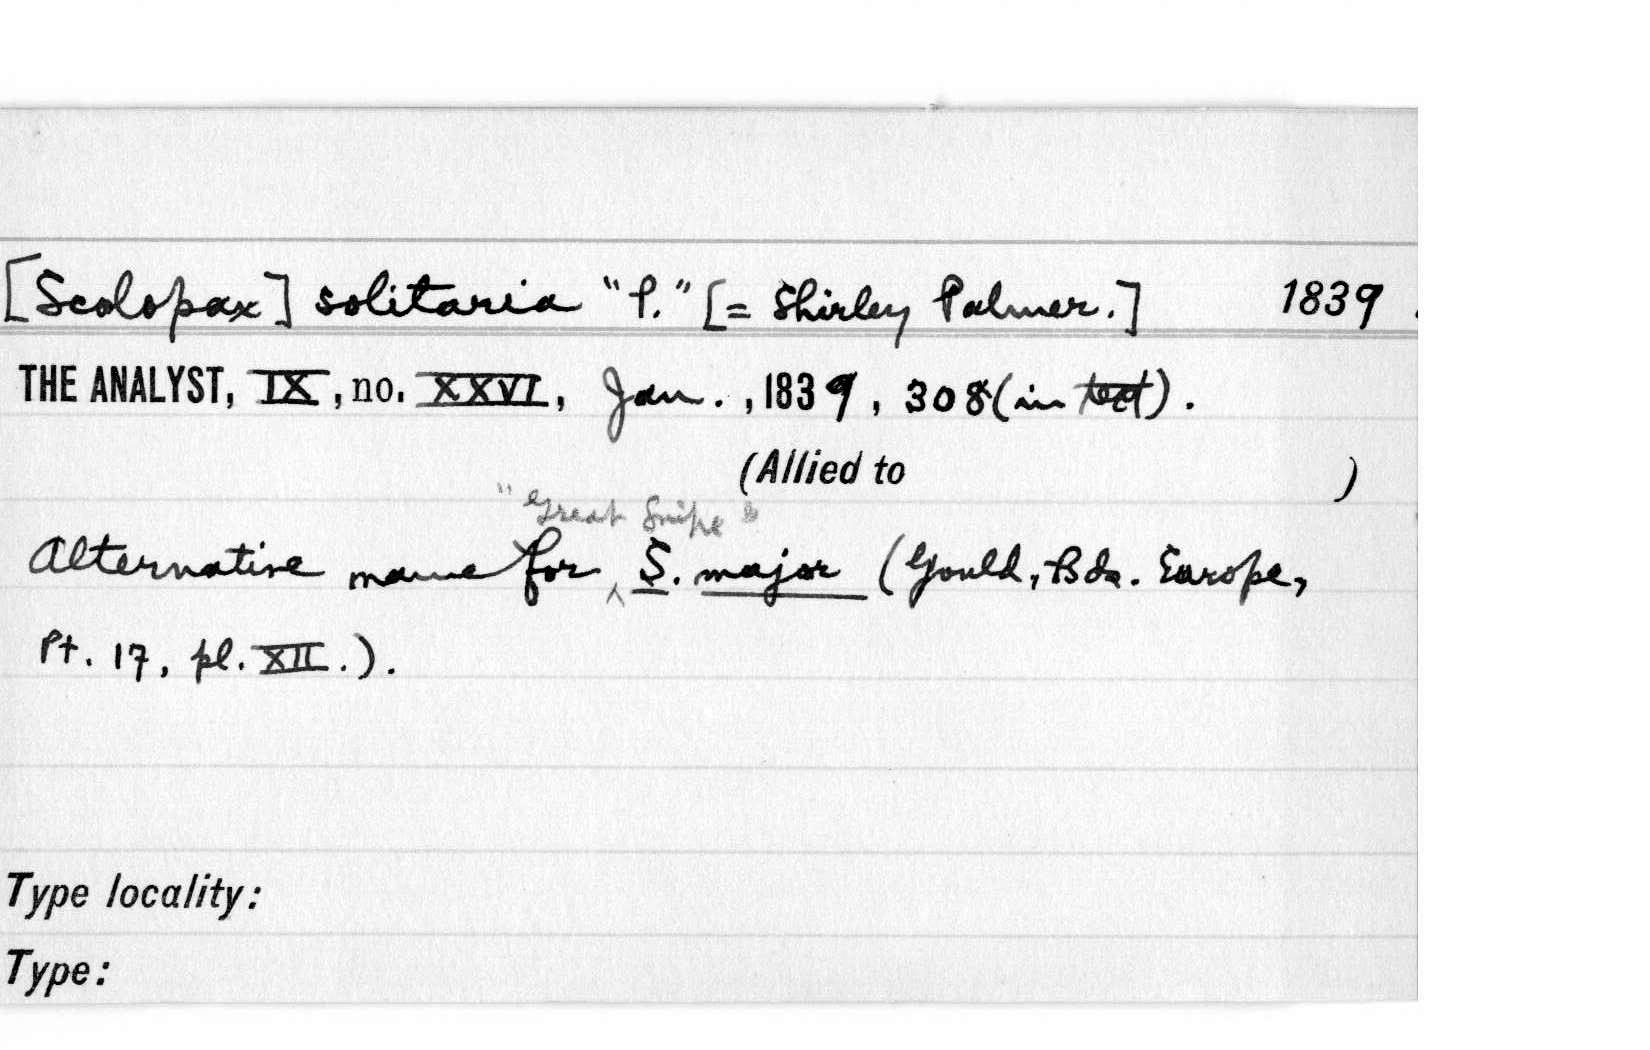 [Scolopax] solitaria "P." [= Shirley Palmer.] 1839.
THE ANALYST, IX, no. XXVI, Jan., 1839, 308 (in text).
(Allied to )
"Great Snipe"
Alternative name for ^ S. major (Gould, Bds. Europe,
Pt. 17, pl. XII.).
Type locality:
Type: